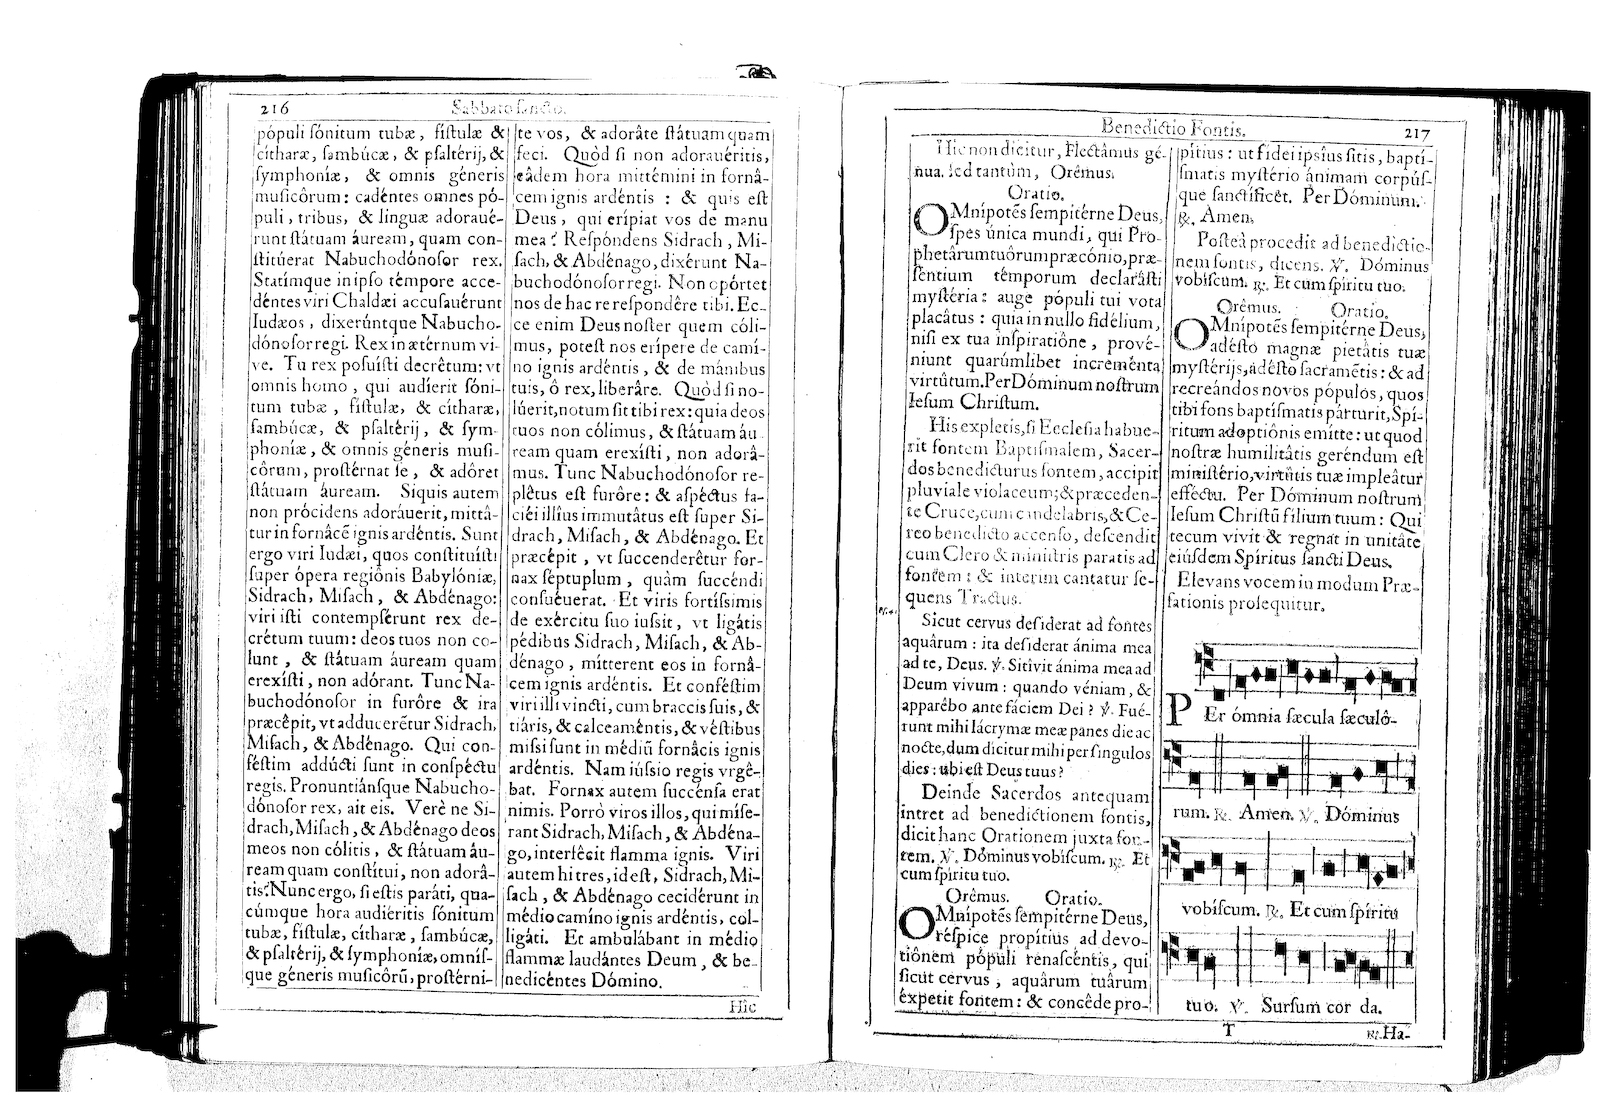 216
Sabbato sancto.
pópuli sónitum tubæ, fístulæ &
cítharæ, sambúcæ, & psaltérij, &
symphoniæ, & omnis géneris
musicôrum: cadéntes omnes pó-
puli, tribus, & linguæ adoraué-
runt státuam áuream, quam con-
stitúerat Nabuchodónosor rex.
Statímque in ipso témpore acce-
déntes viri Chaldæi accusauérunt
Iudæos, dixerúntque Nabucho-
dónosor regi. Rex in ætérnum vi-
ve. Tu rex posuísti decrêtum: vt
omnis homo, qui audíerit sóni-
tum tubæ, fístulæ, & cítharæ,
sambúcæ, & psaltérij, & sym-
phoníæ, & omnis géneris musi-
côrum, prostérnat se, & adóret
státuam áuream. Siquis autem
non prócidens adoráuerit, mittâ-
tur in fornâcẽ ignis ardéntis. Sunt
ergo viri Iudæi, quos constituísti
super ópera regiônis Babylóniæ,
Sidrach, Misach, & Abdénago:
viri isti contempsérunt rex de-
crétum tuum: deos tuos non co-
lunt, & státuam áuream quam
erexísti, non adórant. Tunc Na-
buchodónosor in furôre & ira
præcêpit, vt adducerêtur Sidrach,
Misach, & Abdénago. Qui con-
féstim addúcti sunt in conspéctu
regis. Pronuntiánsque Nabucho-
dónosor rex, ait eis. Verè ne Si-
drach, Misach, & Abdénago deos
meos non cólitis, & státuam áu-
ream quam constítui, non adorâ-
tis? Nunc ergo, si estis paráti, qua-
cúmque hora audiéritis sónitum
tubæ, fístulæ, cítharæ, sambúcæ,
& psaltérij, & symphoníæ, omnís-
que géneris musicôrũ, prostérni-
te vos, & adorâte státuam quam
feci. Quòd si non adorauéritis,
eâdem hora mittémini in fornâ-
cem ignis ardéntis : & quis est
Deus, qui erípiat vos de manu
mea? Respóndens Sidrach, Mi-
sach, & Abdénago, dixérunt Na-
buchodónosor regi. Non opórtet
nos de hac re respondêre tibi. Ec-
ce enim Deus noster quem cóli-
mus, potest nos erípere de camí-
no ignis ardéntis, & de mánibus
tuis, ô rex, liberâre. Quòd si no-
lúerit, notum sit tibi rex: quia deos
tuos non cólimus, & státuam áu
ream quam erexísti, non adorâ-
mus. Tunc Nabuchodónosor re-
plêtus est furôre: & aspéctus fa-
ciéi illîus immutâtus est super Si-
drach, Misach, & Abdénago. Et
præcépit, vt succenderêtur for-
nax séptuplum, quàm succéndi
consuéuerat. Et viris fortíssimis
de exércitu suo iussit, vt ligátis
pédibus Sidrach, Misach, & Ab-
dénago, mítterent eos in fornâ-
cem ignis ardéntis. Et conféstim
viri illi vincti, cum braccis suis, &
tiáris, & calceaméntis, & véstibus
missi sunt in médiũ fornâcis ignis
ardéntis. Nam iússio regis vrgê-
bat. Fornax autem succénsa erat
nimis. Porrò viros illos, qui míse-
rant Sidrach, Misach, & Abdéna-
go, interfêcit flamma ignis. Viri
autem hi tres, id est, Sidrach, Mi-
sach, & Abdénago cecidérunt in
médio camíno ignis ardéntis, col-
ligáti. Et ambulábant in médio
flammæ laudántes Deum, & be-
nedicéntes Dómino.
Hîc
Benedictio Fontis.
217
Hic non dicitur, Flectâmus gé-
nua. sed tantùm, Orémus.
Oratio.
OMnípotẽs sempitérne Deus,
spes única mundi, qui Pro-
phetârum tuôrum præcónio, præ-
séntium témporum declarâsti
mystéria: auge pópuli tui vota
placâtus : quia in nullo fidélium,
nisi ex tua inspiratiône, prové-
niunt quarúmlibet increménta
virtûtum. Per Dóminum nostrum
Iesum Christum.
His expletis, si Ecclesia habue-
rit fontem Baptismalem, Sacer-
dos benedicturus fontem, accipit
pluviale violaceum; & præceden-
te Cruce, cum candelabris, & Ce-
reo benedicto accenso, descendit
cum Clero & ministris paratis ad
fontem : & interim cantatur se-
quens Tractus.
Ps. 41.
Sicut cervus desíderat ad fontes
aquârum : ita desíderat ánima mea
ad te, Deus. ℣. Sitívit ánima mea ad
Deum vivum : quando véniam, &
apparébo ante fáciem Dei? ℣. Fué-
runt mihi lácrymæ meæ panes die ac
nocte, dum dicitur mihi per síngulos
dies : ubi est Deus tuus?
Deinde Sacerdos antequam
intret ad benedictionem fontis,
dicit hanc Orationem juxta fon-
tem. ℣. Dóminus vobíscum. ℟. Et
cum spíritu tuo.
Orêmus. Oratio.
OMnípotẽs sempitérne Deus,
réspice propítius ad devo-
tiônem pópuli renascéntis, qui
sicut cervus, aquârum tuârum
éxpetit fontem: & concêde pro-
pítius : ut fídei ipsíus sitis, baptí-
smatis mystério ánimam corpús-
que sanctíficet. Per Dóminum.
℟. Amen.
Posteà procedit ad benedictio-
nem fontis, dicens. ℣. Dóminus
vobiscum. ℟. Et cum spíritu tuo.
Orêmus. Oratio.
OMnípotẽs sempitérne Deus,
adésto magnæ pietâtis tuæ
mystérijs, adésto sacramẽtis: & ad
recreándos novos pópulos, quos
tibi fons baptísmatis párturit, Spí-
ritum adoptiônis emítte: ut quod
nostræ humilitâtis geréndum est
ministério, virtûtis tuæ impleâtur
efféctu. Per Dóminum nostrum
Iesum Christũ fílium tuum: Qui
tecum vivit & regnat in unitâte
eiúsdem Spíritus sancti Deus.
Elevans vocem in modum Præ-
fationis prosequitur.
PEr ómnia sæcula sæculô-
rum. ℟. Amen. ℣. Dóminus
vobíscum. ℟. Et cum spíritu
tuo. ℣. Sursum cor da.
T
℟. Ha-